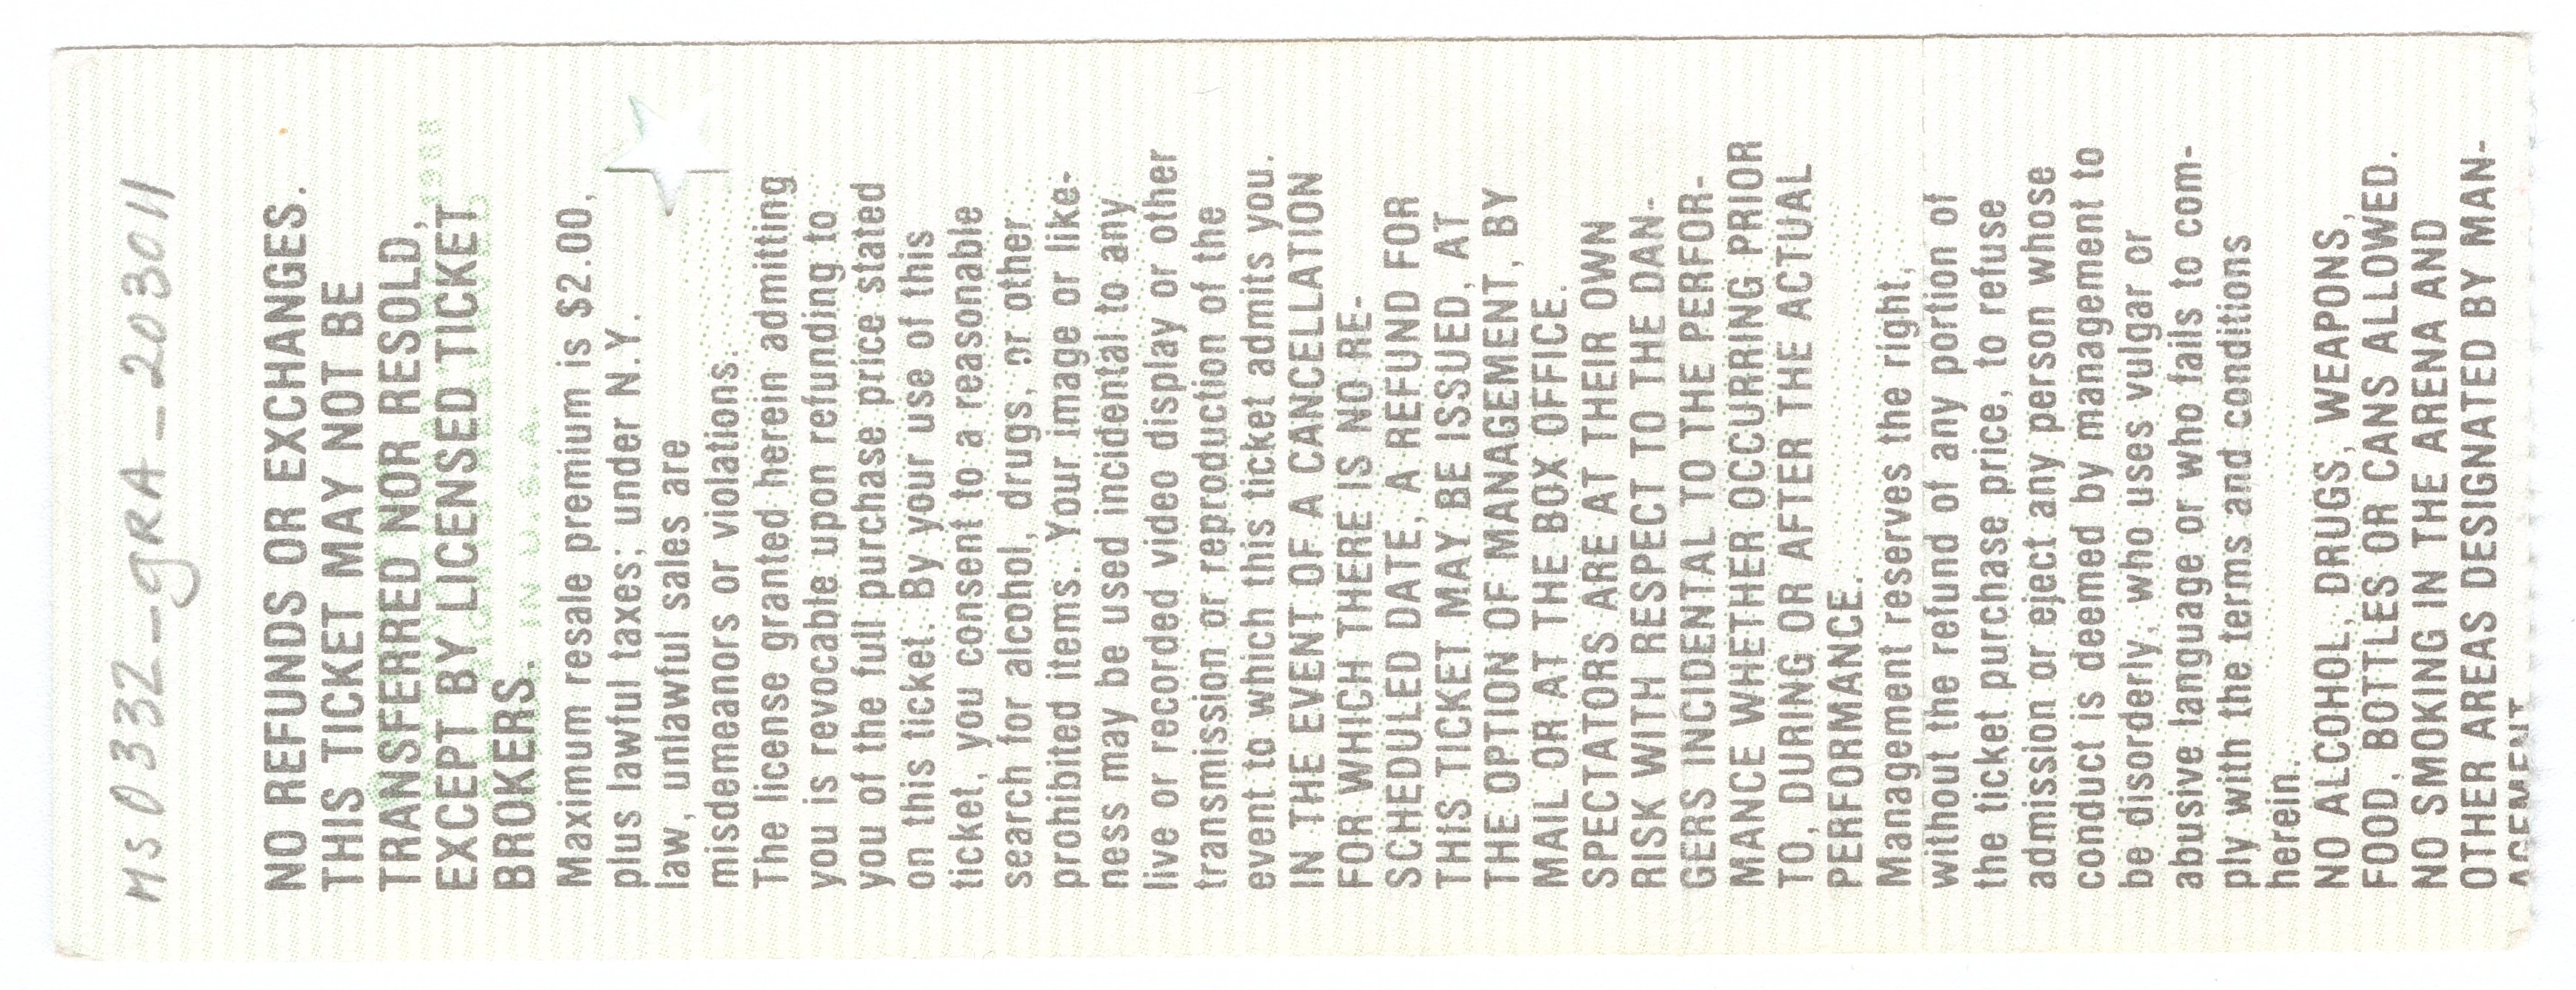 MS0332_gRA_203011
NO REFUNDS OR EXCHANGES.
THIS TICKET MAY NOT BE
TRANSFERRED NOR RESOLD,
EXCEPT BY LICENSED TICKET
BROKERS.
IN U.S.A.
Maximum resale premium is $2.00,
plus lawful taxes; under N.Y.
law, unlawful sales are
misdemeanors or violations.
The license granted herein admitting
you is revocable upon refunding to
you of the full purchase price stated
on this ticket. By your use of this
ticket, you consent to a reasonable
search for alcohol, drugs, or other
prohibited items. Your image or like-
ness may be used incidental to any
live or recorded video display or other
transmission or reproduction of the
event to which this ticket admits you.
IN THE EVENT OF A CANCELLATION
FOR WHICH THERE IS NO RE-
SCHEDULED DATE, A REFUND FOR
THIS TICKET MAY BE ISSUED, AT
THE OPTION OF MANAGEMENT, BY
MAIL OR AT THE BOX OFFICE.
SPECTATORS ARE AT THEIR OWN
RISK WITH RESPECT TO THE DAN-
GERS INCIDENTAL TO THE PERFOR-
MANCE WHETHER OCCURRING PRIOR
TO, DURING OR AFTER THE ACTUAL
PERFORMANCE.
Management reserves the right,
without the refund of any portion of
the ticket purchase price, to refuse
admission or eject any person whose
conduct is deemed by management to
be disorderly, who uses vulgar or
abusive language or who fails to com-
ply with the terms and conditions
herein.
NO ALCOHOL, DRUGS, WEAPONS,
FOOD, BOTTLES OR CANS ALLOWED.
NO SMOKING IN THE ARENA AND
OTHER AREAS DESIGNATED BY MAN-
AGEMENT